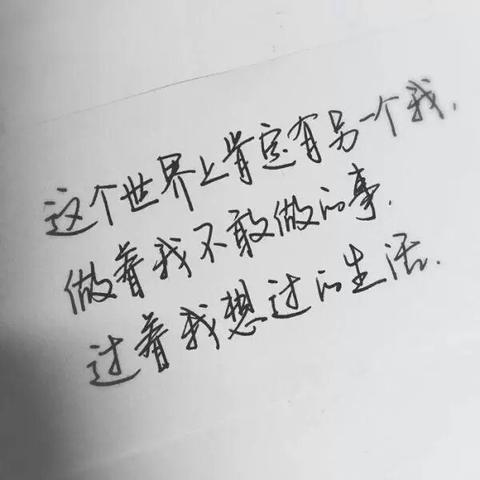 这个世界上肯定有另一个我.
做着我不敢做的事.
过着我想过的生活.